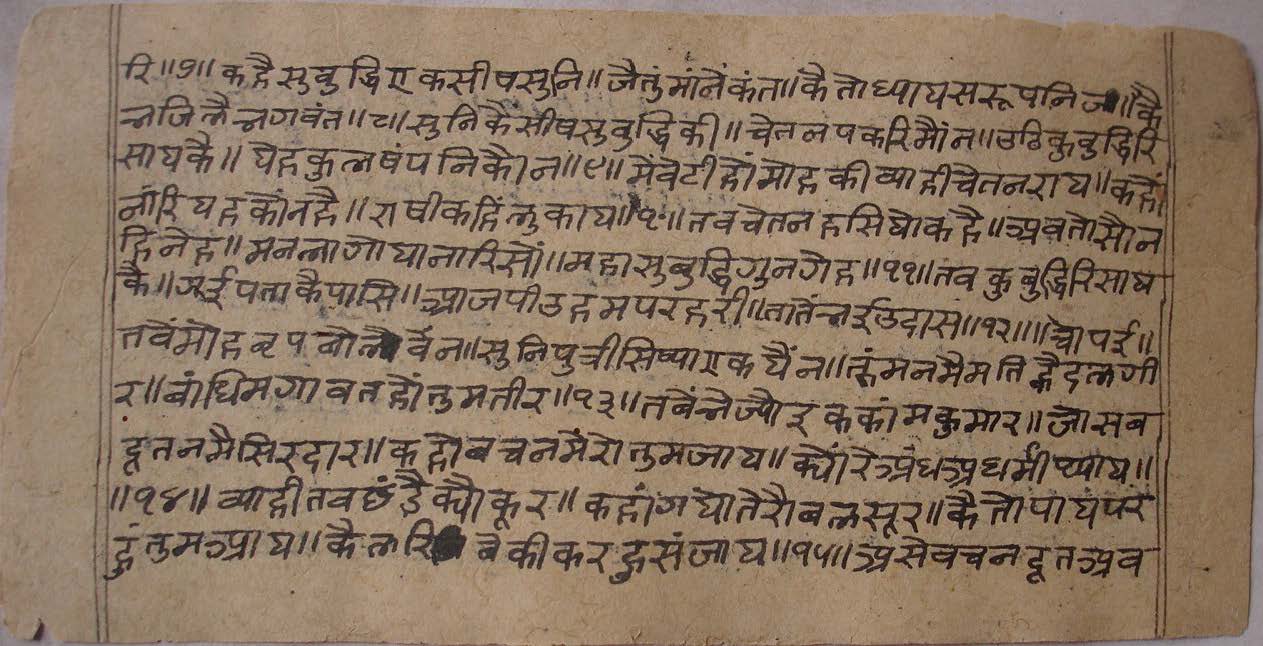 रि॥७॥ कहै सुबुद्धि एक सीष सुनि॥ जै तुं मांनै कंत॥ कै तो ध्याय सरूप निज॥ कै
भजि लै भगवंत॥८॥ सुनि कैं सीष सुबुद्धि की॥ चेतल पकरि मौंन॥ उठि कुबुद्धि रि
साय कै॥ येह कुलषंपनि कौन॥९॥ मैं बेटी हों मोह की व्याही चेतनराय॥ कहौ
नांरि यह कौंन है॥ राषी कहि लुकाय॥१०॥ तव चेतन हसि यों कहै॥ अव तो सौ न
हि नेह॥ मन लागो या नारि सों॥ महा सुबुद्धि गुन गेह॥११॥ तव कुबुद्धि रिसाय
कै॥ गई पता कै पासि॥ आज पीउ हम परहरी॥ तातें भई उदास॥१२॥ ॥चोपई॥
तवैं मोह नृप बोलै वैंन॥ सुनि पुत्री सिष्या एक यैंन॥ तूं मनमै मति ह्वै दलगी
र॥ बांधि मगावत हों तुम तीर॥१३॥ तबैं भेज्यो इक कांमकुमार॥ जो सब
दूतनमै सिरदार॥ कहो बचन मेरो तुम जाय॥ क्यों रे अंध अधर्मी प्याय॥
॥१४॥ व्याही तव छंडै क्यौ कूर॥ कहां गयो तेरौ बल सूर॥ कै तो पाय पर
हुं तुम आय॥ कै लरि बे की करहु संजाय॥१५॥ असे वचन दूत अव